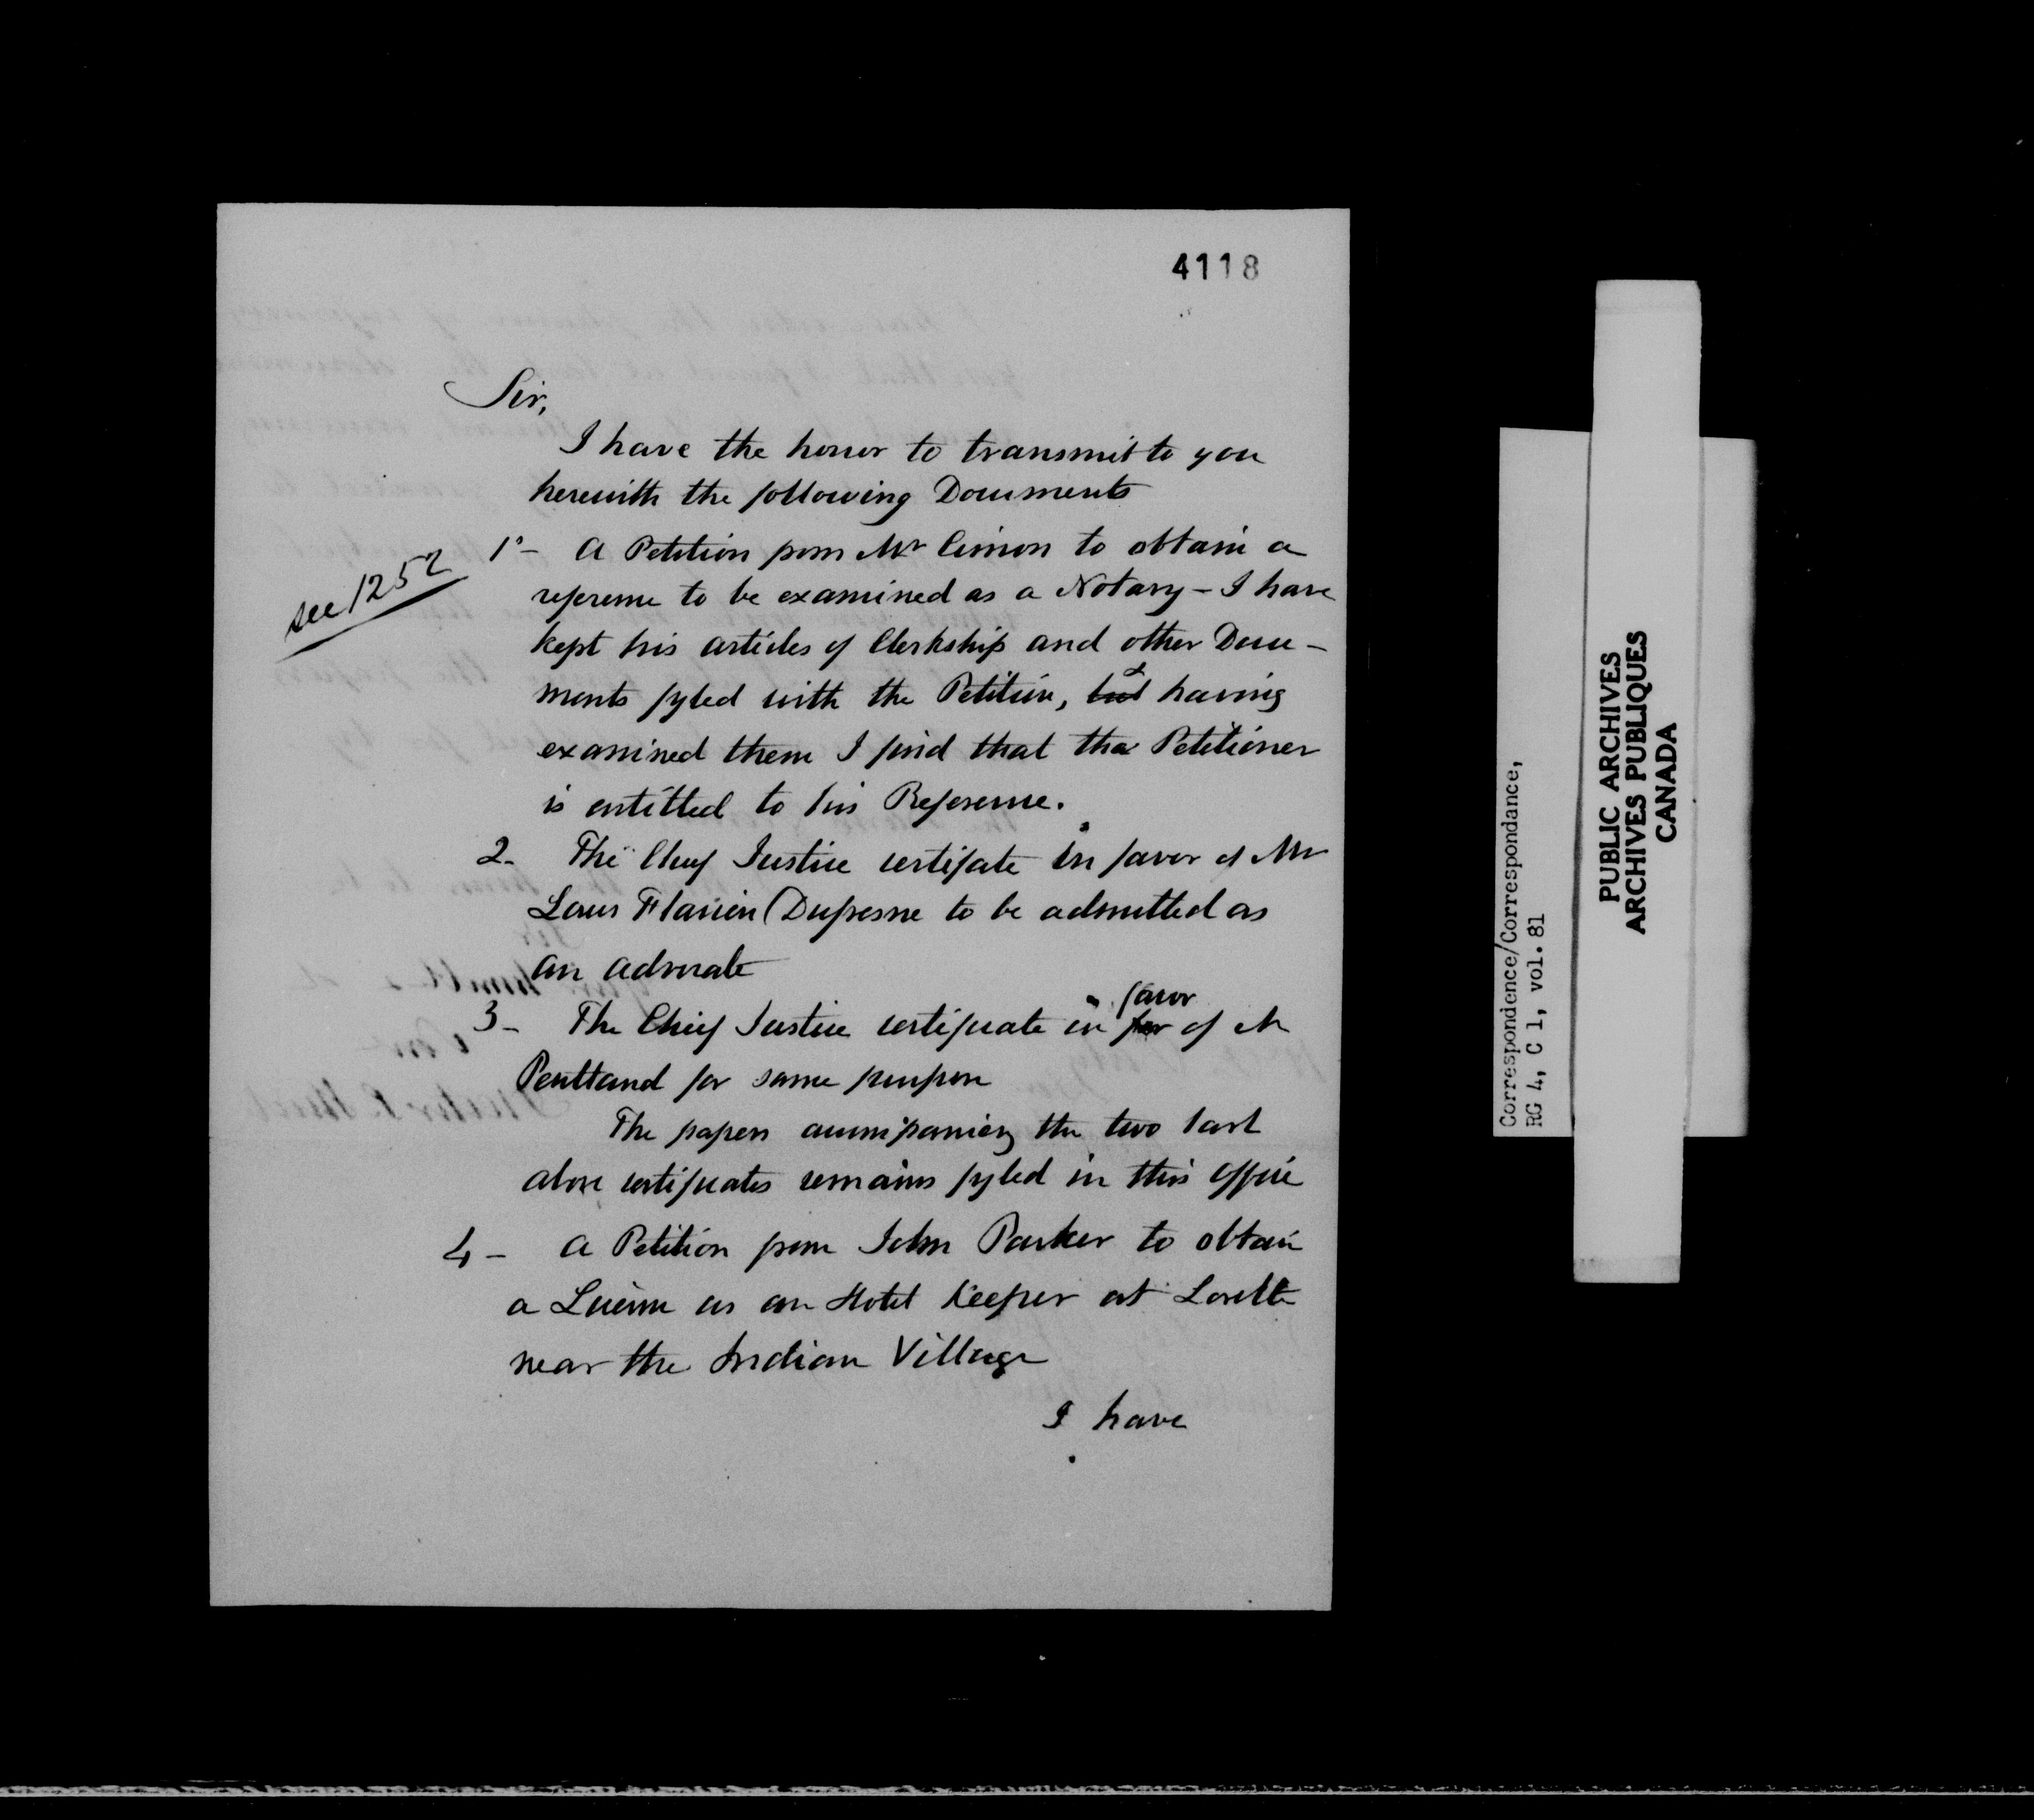 4118
Sir,
I have the honor to transmit to you
herewith the following Documents
see 1252
1°- A Petition from Mr Cimon to obtain a
reference to be examined as a Notary - I have
kept his articles of Clerkship and other Docu-
ments fyled with the Petition, but & having
examined them I find that the Petitioner
is entitled to his Reference.
2- The Chief Justice certificate in favor of Mr
Louis Flavien Dufresne to be admitted as
an advocate
3- The Chief Justice certificate in for favor of M
Pentland for same purpose
The papers accompanying the two last
above certificates remains fyled in this office
4- A Petition from John Parker to obtain
a License as an Hotel Keeper at Lorette
near the Indian Village
I have
Correspondence/Correspondance,
RG 4, C 1, vol. 81
PUBLIC ARCHIVES
ARCHIVES PUBLIQUES
CANADA